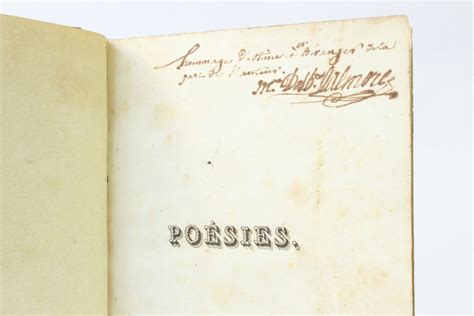 hommage d'estime à Mr Béranger de la
part de l'auteur.
Mme Desb. Valmore
POÉSIES.